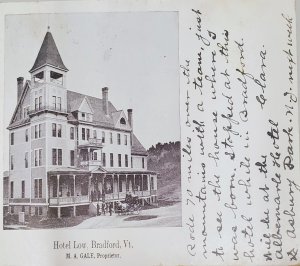 Hotel Low, Bradford, Vt.
M. A. GALE, Proprietor.
Rode 70 miles over the
mountains with a team, just
to see the house where I
was born. Stopped at this
hotel while in Bradford.
Clara.
Will be at the
Albermarle Hotel
Asbury Park. N.J. next week